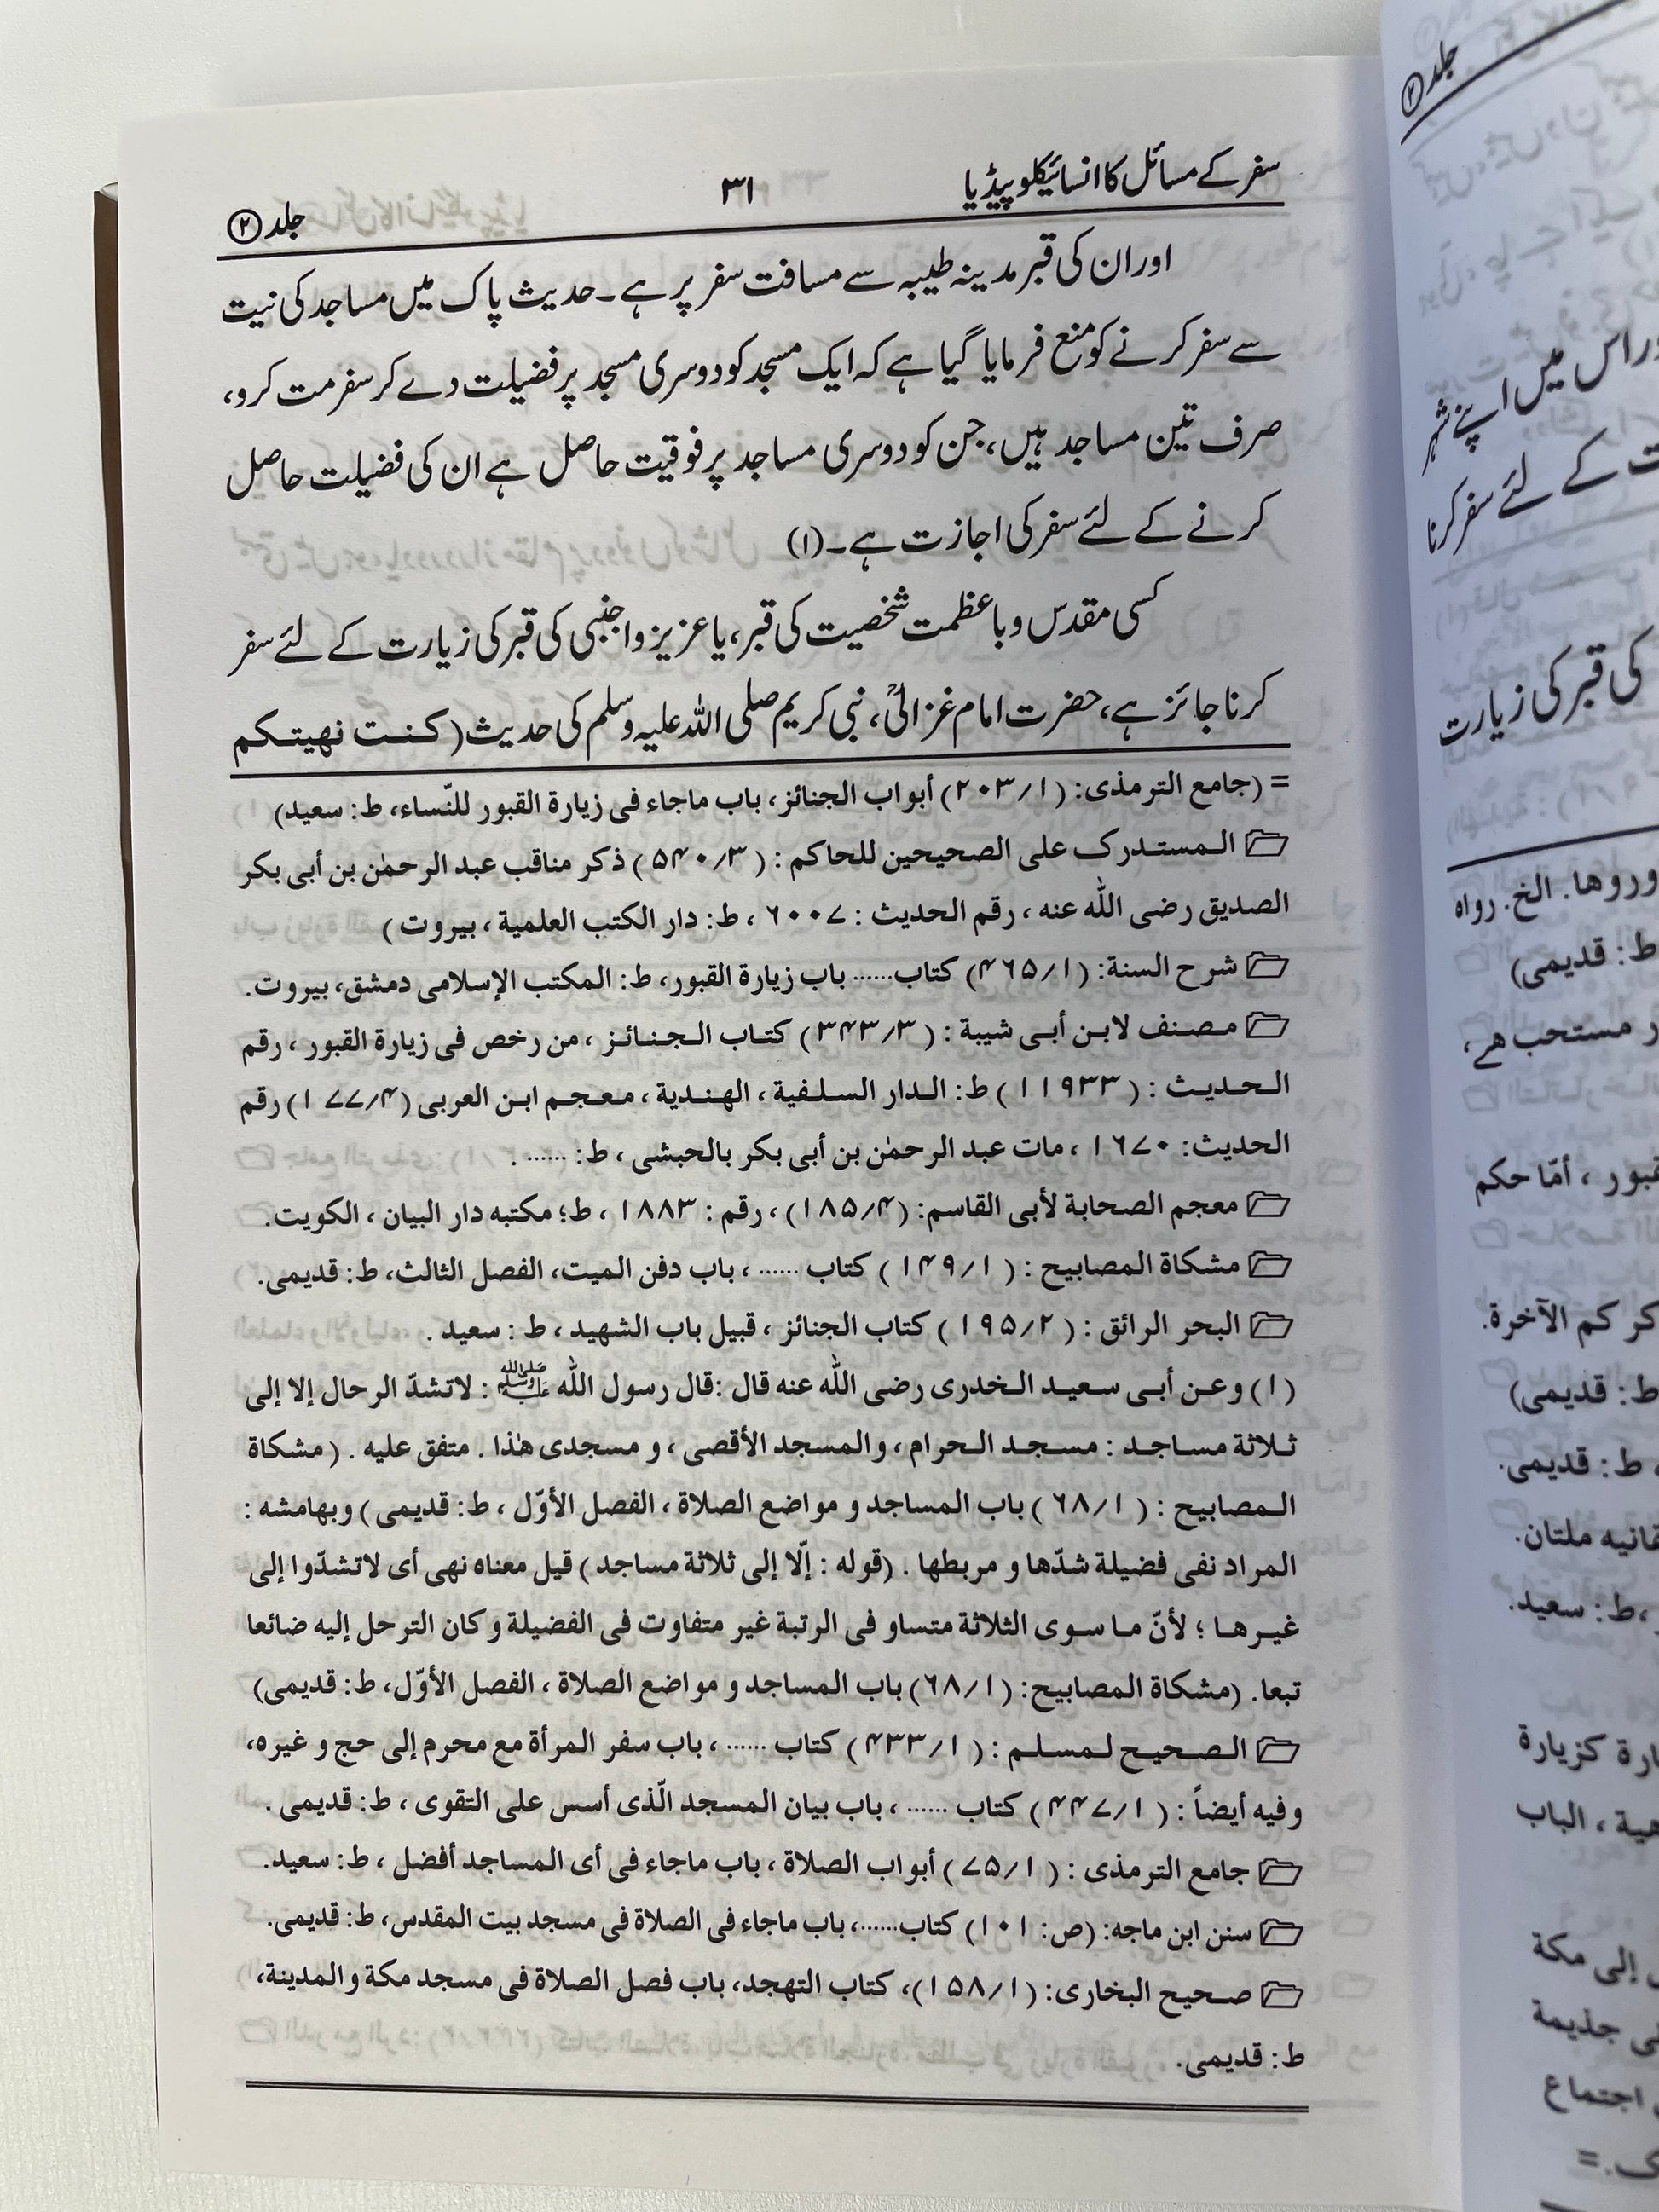 سفر کے مسائل کا انسائیکلوپیڈیا ۳۱ جلد ۲
اور ان کی قبر مدینہ طیبہ سے مسافت سفر پر ہے۔ حدیث پاک میں مساجد کی نیت
سے سفر کرنے کو منع فرمایا گیا ہے کہ ایک مسجد کو دوسری مسجد پر فضیلت دے کر سفر مت کرو،
صرف تین مساجد ہیں، جن کو دوسری مساجد پر فوقیت حاصل ہے ان کی فضیلت حاصل
کرنے کے لئے سفر کی اجازت ہے۔(۱)
کسی مقدس و با عظمت شخصیت کی قبر، یا عزیز و اجنبی کی قبر کی زیارت کے لئے سفر
کرنا جائز ہے، حضرت امام غزالیؒ، نبی کریم صلی اللہ علیہ وسلم کی حدیث (کنت نهیتکم
= (جامع الترمذی: (۱/۲۰۳) أبواب الجنائز، باب ماجاء فی زیارة القبور للنّساء، ط: سعید)
المستدرک علی الصحیحین للحاکم : (۳/۵۴۰) ذکر مناقب عبد الرحمٰن بن أبی بکر
الصدیق رضی اللّٰه عنه ، رقم الحدیث : ۶۰۰۷ ، ط: دار الکتب العلمیة ، بیروت )
شرح السنة: (۱/۴۶۵) کتاب...... باب زیارة القبور، ط: المکتب الإسلامی دمشق، بیروت.
مصنف لابن أبی شیبة : (۳/۳۴۳) کتاب الجنائز ، من رخص فی زیارة القبور ، رقم
الحدیث : (۱۱۹۳۳) ط: الدار السلفیة ، الهندیة ، معجم ابن العربی (۴/۱۷۷) رقم
الحدیث: ۱۶۷۰ ، مات عبد الرحمٰن بن أبی بکر بالحبشی ، ط: ...... .
معجم الصحابة لأبی القاسم: (۴/۱۸۵) ، رقم : ۱۸۸۳ ، ط؛ مکتبه دار البیان ، الکویت.
مشکاة المصابیح : (۱/۱۴۹) کتاب ...... ، باب دفن المیت، الفصل الثالث، ط: قدیمی.
البحر الرائق : (۲/۱۹۵) کتاب الجنائز ، قبیل باب الشهید ، ط : سعید .
(۱) وعن أبی سعید الخدری رضی اللّٰه عنه قال :قال رسول اللّٰه ﷺ : لاتشدّ الرحال إلا إلی
ثلاثة مساجد : مسجد الحرام ، والمسجد الأقصی ، و مسجدی هٰذا . متفق علیه . (مشکاة
المصابیح : (۱/۶۸) باب المساجد و مواضع الصلاة ، الفصل الأوّل ، ط: قدیمی) وبهامشه :
المراد نفی فضیلة شدّها و مربطها . (قوله : إلّا إلی ثلاثة مساجد) قیل معناه نهی أی لاتشدّوا إلی
غیرها ؛ لأنّ ما سوی الثلاثة متساو فی الرتبة غیر متفاوت فی الفضیلة و کان الترحل إلیه ضائعا
تبعا. (مشکاة المصابیح: (۱/۶۸) باب المساجد و مواضع الصلاة ، الفصل الأوّل، ط: قدیمی)
الصحیح لمسلم : (۱/۴۳۳) کتاب ...... ، باب سفر المرأة مع محرم إلی حج و غیره،
وفیه أیضاً : (۱/۴۴۷) کتاب ...... ، باب بیان المسجد الّذی أسس علی التقوی ، ط: قدیمی .
جامع الترمذی : (۱/۷۵) أبواب الصلاة ، باب ماجاء فی أی المساجد أفضل ، ط: سعید.
سنن ابن ماجه: (ص: ۱۰۱) کتاب......، باب ماجاء فی الصلاة فی مسجد بیت المقدس، ط: قدیمی.
صحیح البخاری: (۱/۱۵۸)، کتاب التهجد، باب فصل الصلاة فی مسجد مکة والمدینة،
ط: قدیمی.
جلد ۲
اس میں اپنے شہر
کے لئے سفر کرنا
کی قبر کی زیارت
الخ. رواه
ط: قدیمی)
مستحب ہے،
، أمّا حکم
کر کم الآخرة.
ط: قدیمی)
، ط: قدیمی.
ملتان.
،ط: سعید.
کزیارة
، الباب
إلی مکة
جذیمة
اجتماع